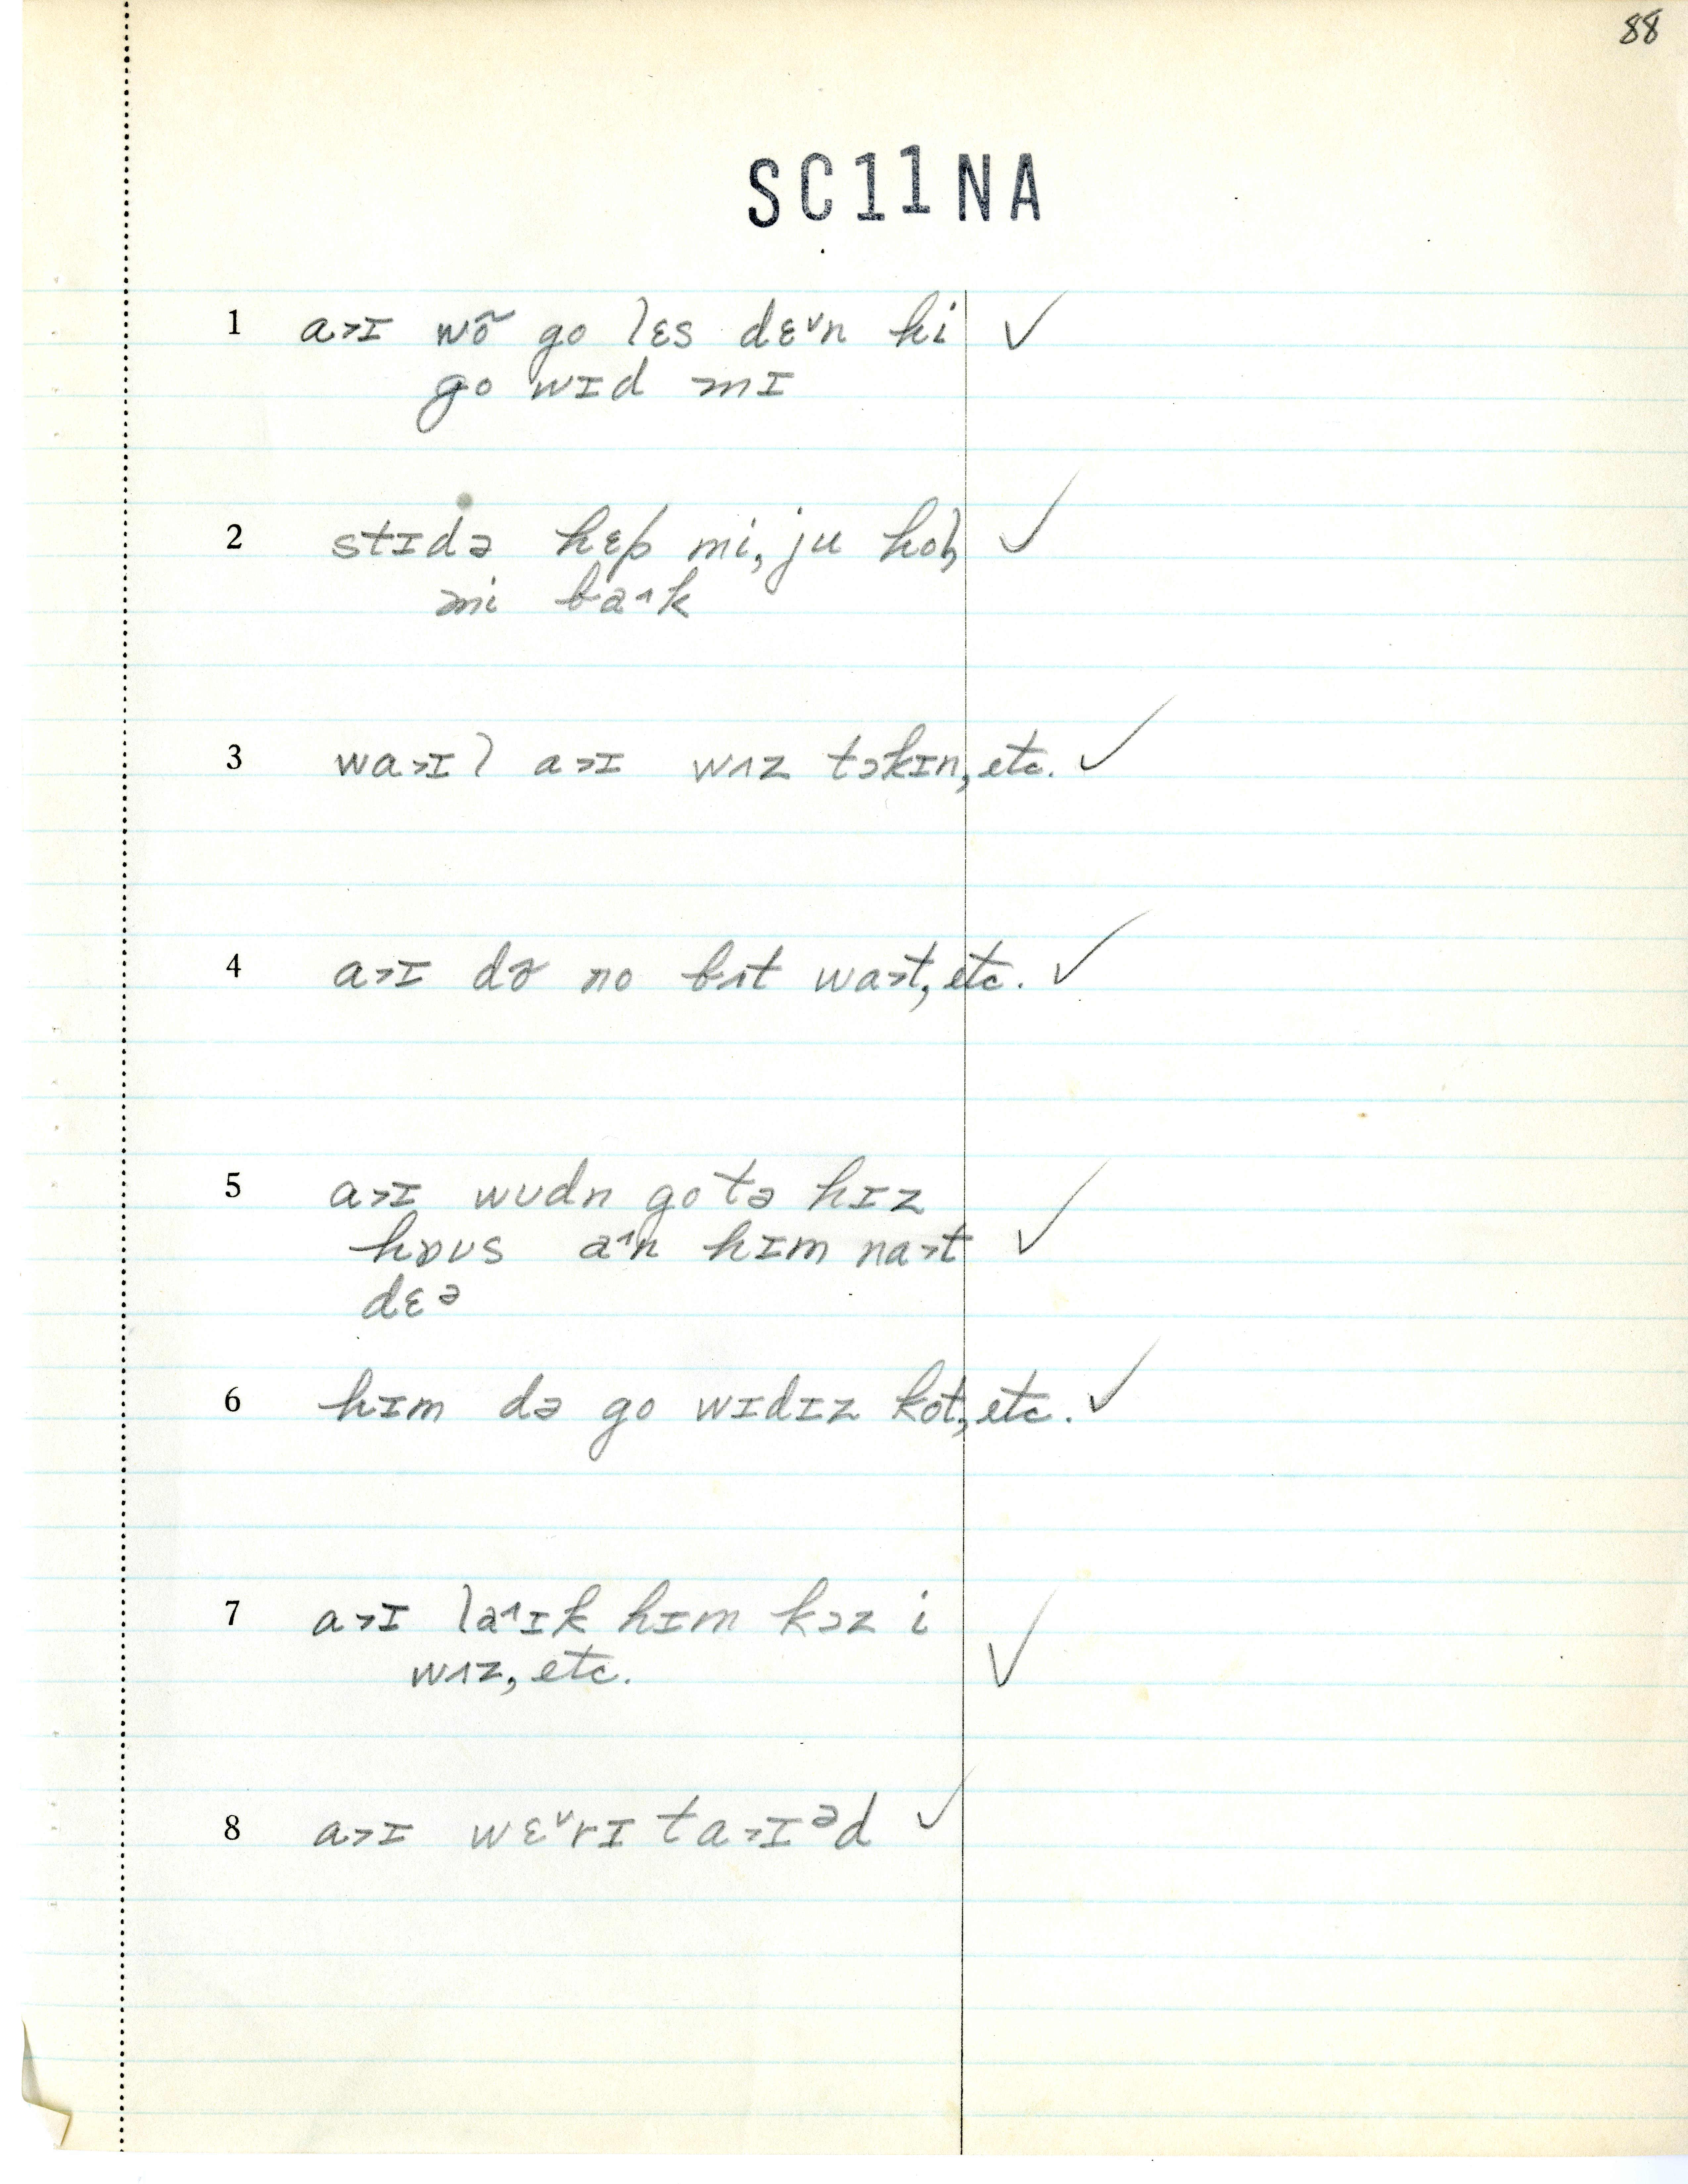 88
SC11NA
1 a˃ɪ wõ go lɛs dɛ˅n hi ✓
go wɪd mɪ
2 stɪdə hɛp mi, ju hol ✓
mi ba˄k
3 wa˃ɪl a˃ɪ wʌz tɔkɪn, etc. ✓
4 a˃ɪ də̃ no bʌt wa˃t, etc. ✓
5 a˃ɪ wʊdn go tə hɪz
hɒʊs a˄n hɪm na˃t ✓
dɛə
6 hɪm də go wɪdɪz kot, etc. ✓
7 a˃ɪ la˄ɪk hɪm kɔz i
wʌz, etc. ✓
8 a˃ɪ wɛ˅rɪ ta˃ɪᵊd ✓